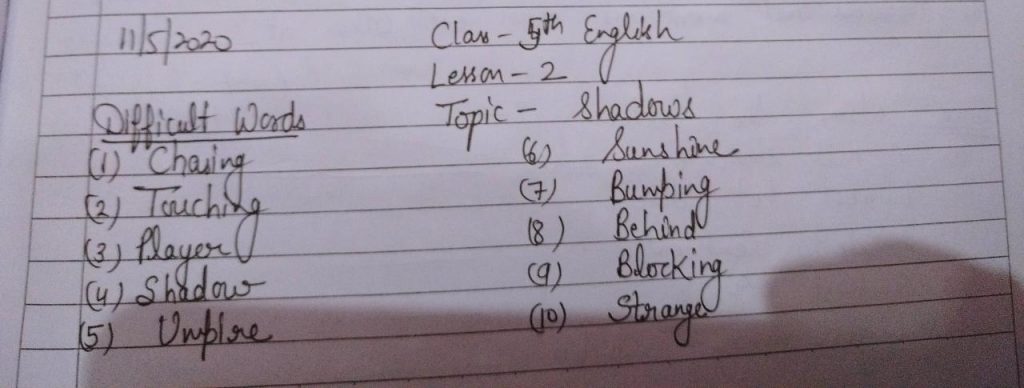 11/5/2020
Class - 5th English
Lesson - 2
Topic - Shadows
Difficult Words
(1) Chasing
(2) Touching
(3) Player
(4) Shadow
(5) Umpire
(6) Sunshine
(7) Bumping
(8) Behind
(9) Blocking
(10) Strange